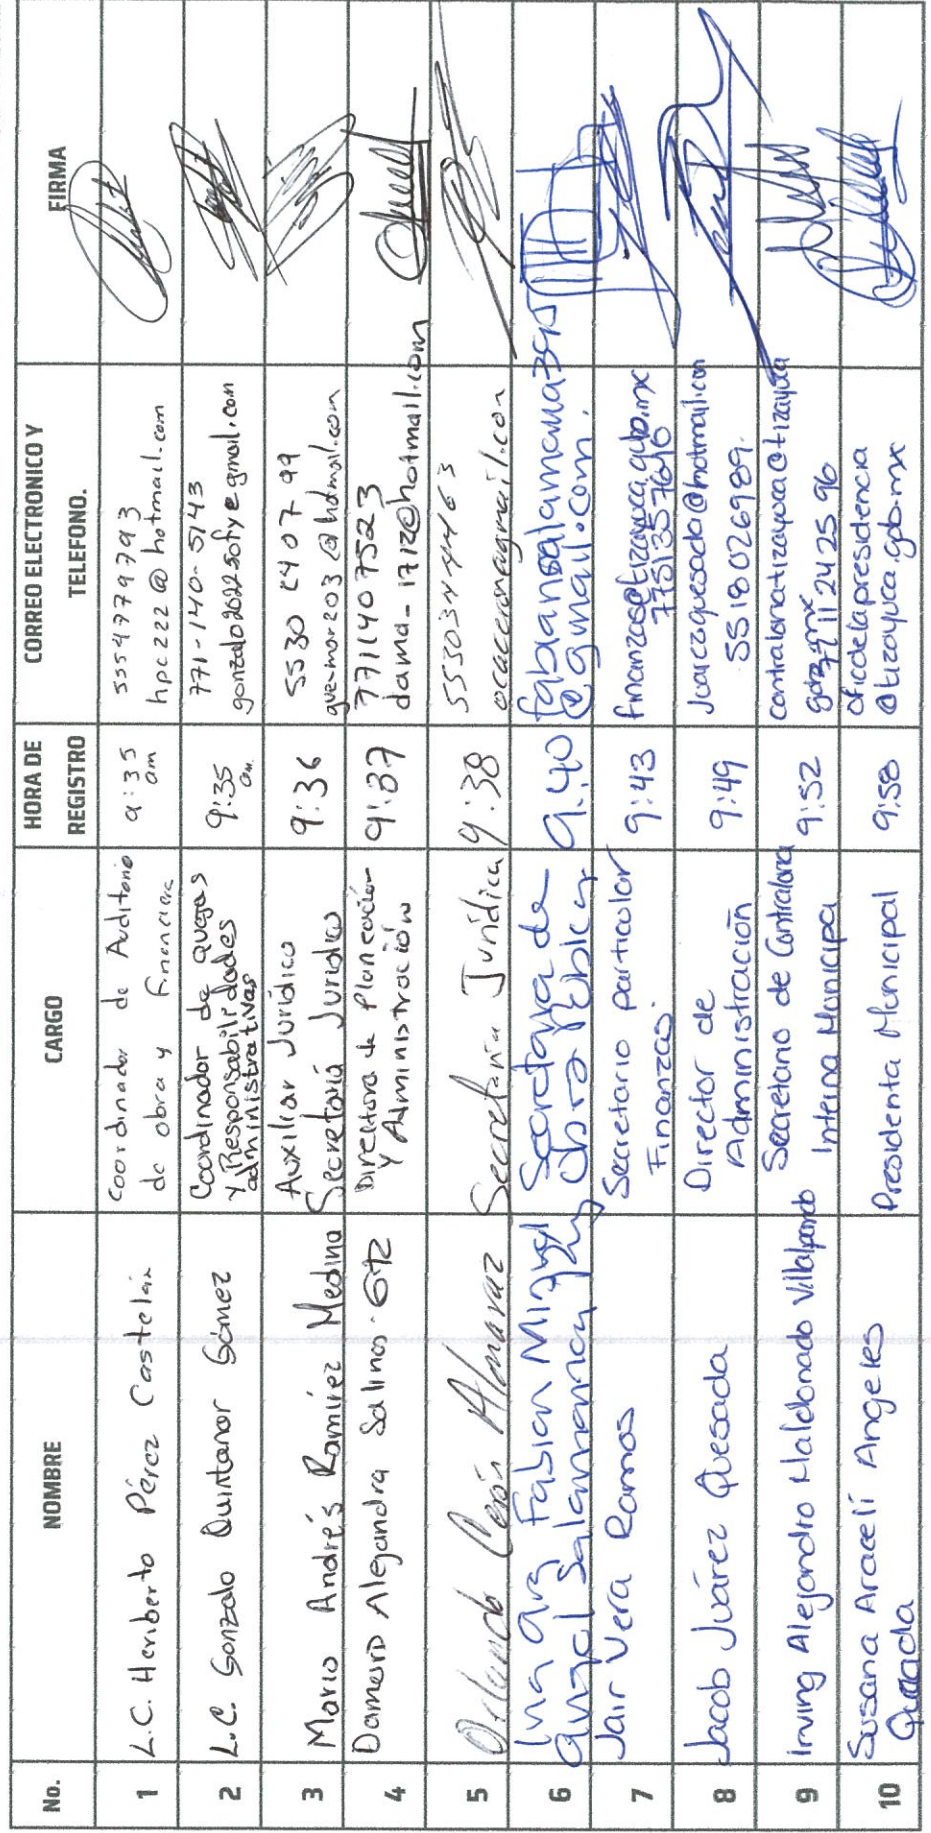 No.
NOMBRE
CARGO
HORA DE
REGISTRO
CORREO ELECTRONICO Y
TELEFONO.
FIRMA
1
L.C. Heriberto Pérez Castelán
Coordinador de Auditoria
de obra y Financiera
9:35
am
5554779793
hpc222@hotmail.com
2
L.C. Gonzalo Quintanar Gómez
Coordinador de quejas
y Responsabilidades
administrativas
9:35
am
771-140-5143
gonzalo2022sofy@gmail.com
3
Mario Andrés Ramírez Medina
Auxiliar Jurídico
Secretaria Juridica
9:36
5530 4407 99
que-mor203@hotmail.com
4
Damaris Alejandra Salinas Gtz
Directora de Planeación
y Administración
9:37
7711407523
dama_1712@hotmail.com
5
Orlando Cerón Almaraz
Secretaria Jurídica
9:38
6
Ing Arq Fabian Miguel
Angel Salamanca
Secretaria de
obra Publica
9:40
@gmail.com.
7
Jair Vera Ramos
Secretario particular
Finanzas.
9:43
finanzas@tizayuca.gob.mx
7751357616
8
Jacob Juárez Quesada
Director de
Administración
9:49
Juarezquesada@hotmail.com
5518026989.
9
Irving Alejandro Maldonado Villalpando
Secretario de Contraloria
Interna Municipal
9:52
contraloriatizayuca@tizayuca
gob.mx
771124 25 96
10
Susana Araceli Angeles
Quezada
Presidenta Municipal
9:58
oficdelapresidencia
@tizayuca.gob.mx